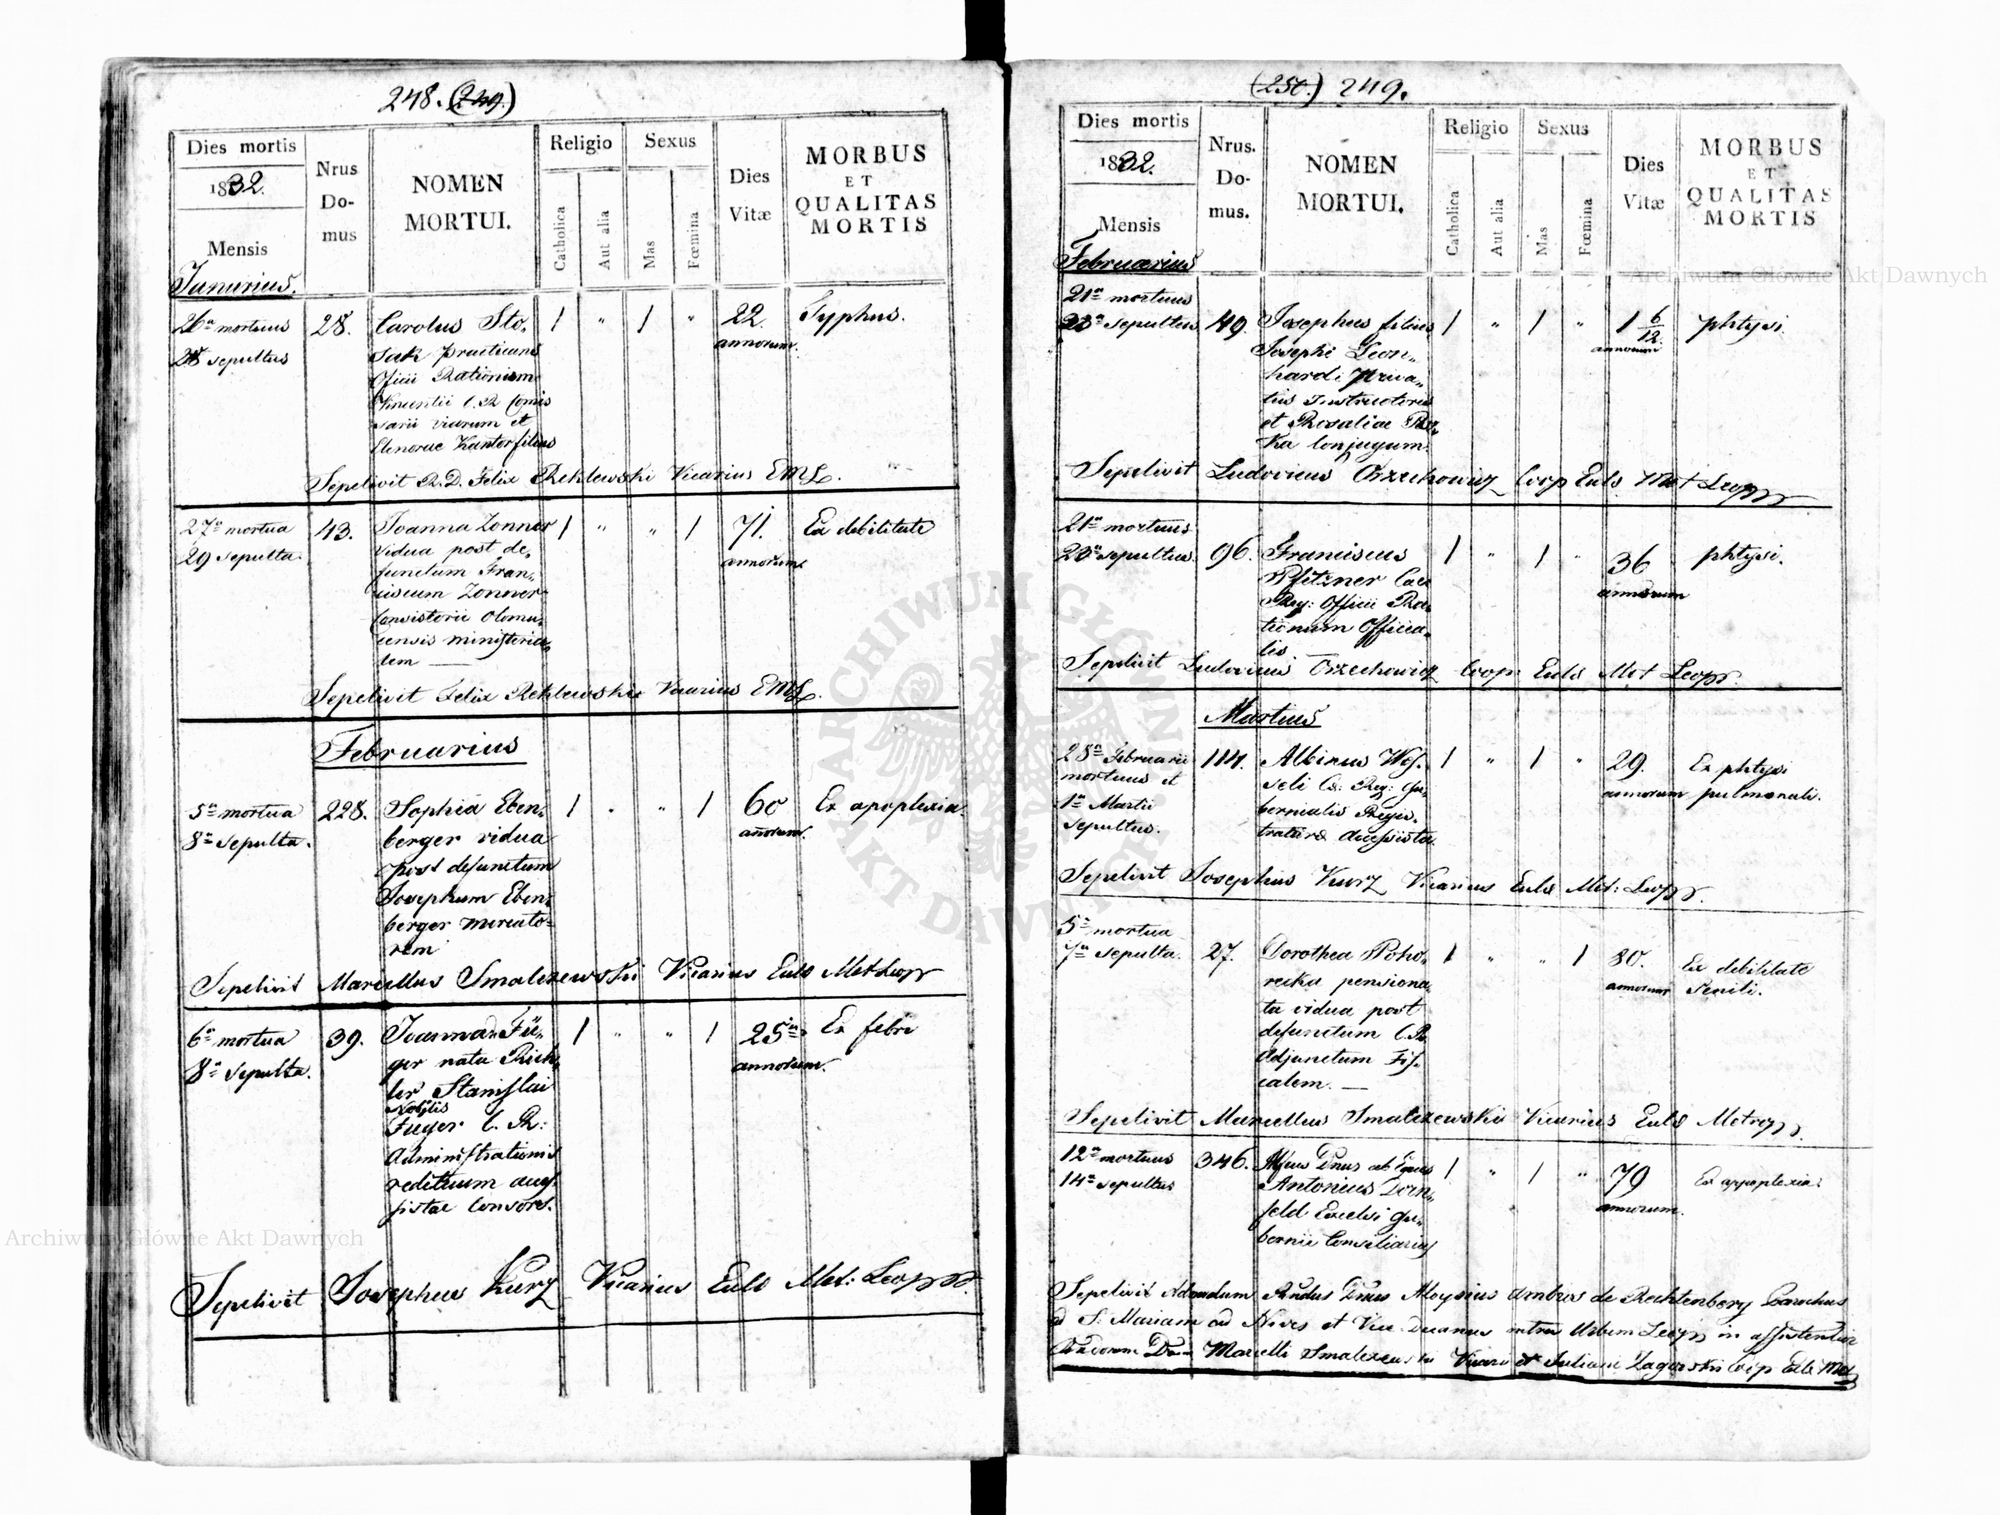 248. (249.)
Dies mortis
1832.
Mensis
Nrus
Do-
mus
NOMEN
MORTUI.
Religio
Catholica
Aut alia
Sexus
Mas
Fœmina
Dies
Vitæ
MORBUS
ET
QUALITAS
MORTIS
Januarius.
26ª mortuus
28 sepultus
28.
Carolus Sto-
sak practicans
Officii Rationum
Vincentii C. R. Comis
sarii viarum et
Elenorae Kantor filius
1 " 1 "
22.
annorum.
Typhus.
Sepelivit R. D. Felix Rehlewski Vicarius EML.
27ª mortua
29 sepulta.
43.
Joanna Zonner
vidua post de-
functum Fran-
ciscum Zonner
Consistorii Olomu-
censis ministeria-
lem
1 " " 1
71.
annorum.
Ex debilitate
Sepelivit Felix Rehlewski Vicarius EML.
Februarius
5ª mortua
8ª sepulta.
228.
Sophia Eben-
berger vidua
post defunctum
Josephum Eben-
berger mercato-
rem
1 " " 1
60
annorum.
Ex apoplexia.
Sepelivit Marcellus Smalczewski Vicarius Eccls Met Leopp
6ª mortua
8ª sepulta.
39.
Joanna de Fü-
ger nata Rich-
ler Stanislai
Nobilis
Fuger C. R:
Administrationis
redituum acces
sistae Consors.
1 " " 1
25
annorum.
Ex febri
Sepelivit Josephus Kurz Vicarius Eccls Met: Leopp.
(250.) 249.
Dies mortis
1832.
Mensis
Nrus.
Do-
mus.
NOMEN
MORTUI.
Religio
Catholica
Aut alia
Sexus
Mas
Fœmina
Dies
Vitæ
MORBUS
ET
QUALITAS
MORTIS
Februarius
21ª mortuus
23ª sepultus
49.
Josephus filius
Josephi Leon-
hardi priva-
tus Instructoris
et Rosaliae
ka Conjugum.
1 " 1 "
1 6/12.
annorum
phtysi.
Sepelivit Ludovicus Orzechowicz Coop Eccls Met Leopp
21ª mortuus
23ª sepultus.
96.
Franciscus
Pfitzner Cae
Reg: Officii Ra-
tionum Officia-
lis
1 " 1 "
36
annorum
phtysi.
Sepelivit Ludovicus Orzechowicz Coop: Eccls Met Leopp.
Martius
28ª Februarii
mortuus et
1ª Martii
sepultus.
114.
Albinus Wes-
seli Cs: Reg: Gu-
bernialis Regis-
traturæ accessista
1 " 1 "
29.
annorum
Ex phtysi
pulmonali.
Sepelivit Josephus Kurz Vicarius Eccls Met: Leopp.
5ª mortua
7ª sepulta.
27.
Dorothea Poho-
recka pensiona-
ta vidua post
defunctum C. R.
Adjunctum Fis-
calem.
1 " " 1
80.
annorum
Ex debilitate
senili.
Sepelivit Marcellus Smalczewski Vicarius Eccls Metropp.
12ª mortuus
14ª sepultus
346.
Mfcus Dnus ab Eques
Antonius Dorn-
feld Excelsi Gu-
bernii Consiliarius
1 " 1 "
79
annorum.
Ex apoplexia.
Sepelivit Admodum Rndus Dnus Aloysius Ambros de Rechtenberg Parochus
ad S. Mariam ad Nives et Vice Decanus intra Urbem Leopp in assistentia
Marcelli Smalczewski Vicarii et Juliani Zagorski Coop Eccls Met
Archiwum Główne Akt Dawnych
Archiwum Główne Akt Dawnych
ARCHIWUM GŁÓWNE AKT DAWNYCH